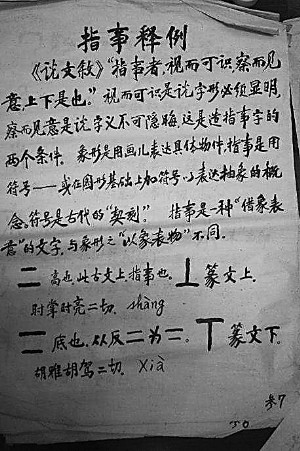 指事释例
《说文敘》“指事者,视而可识,察而见
意,上下是也。”视而可识是说字形必须显明,
察而见意是说字义不可隐晦,这是造指事字的
两个条件。象形是用画儿表达具体物件,指事是用
符号——或在图形基础上加符号以表达抽象的概
念。符号是古代的“契刻”。指事是一种“借象表
意”的文字,与象形之“以象表物”不同.
二 高也。此古文上,指事也。丄 篆文上.
时掌时亮二切. shàng
二 底也。从反二为二。丅 篆文下.
胡雅胡驾二切. Xià
参7
50